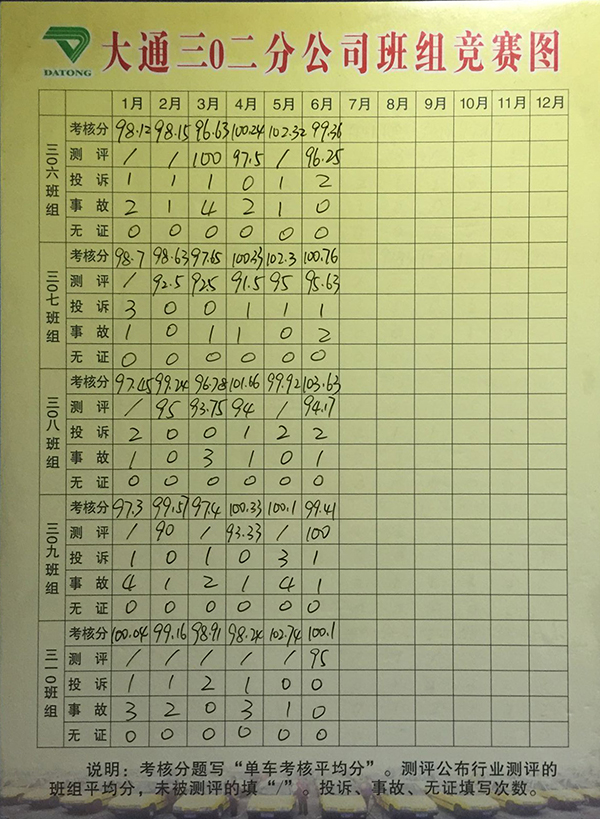 DATONG
大通三0二分公司班组竞赛图
1月 2月 3月 4月 5月 6月 7月 8月 9月 10月 11月 12月
三〇六班组
考核分 98.12 98.15 96.63 100.24 102.32 99.36
测评 / / 100 97.5 / 96.25
投诉 1 1 1 0 1 2
事故 2 1 4 2 1 0
无证 0 0 0 0 0 0
三〇七班组
考核分 98.7 98.63 97.65 100.33 102.3 100.76
测评 / 92.5 92.5 91.5 95 95.63
投诉 3 0 0 1 1 1
事故 1 0 1 1 0 2
无证 0 0 0 0 0 0
三〇八班组
考核分 97.45 99.24 96.78 101.66 99.92 103.63
测评 / 95 93.75 94 / 94.17
投诉 2 0 0 1 2 2
事故 1 0 3 1 0 1
无证 0 0 0 0 0 0
三〇九班组
考核分 97.3 99.57 97.4 100.33 100.1 99.41
测评 / 90 / 93.33 / 100
投诉 1 0 1 0 3 1
事故 4 1 2 1 4 1
无证 0 0 0 0 0 0
三一〇班组
考核分 100.04 99.16 98.91 98.24 102.74 100.1
测评 / / / / / 95
投诉 1 1 2 1 0 0
事故 3 2 0 3 1 0
无证 0 0 0 0 0 0
说明：考核分题写“单车考核平均分”。测评公布行业测评的
班组平均分，未被测评的填“/”。投诉、事故、无证填写次数。